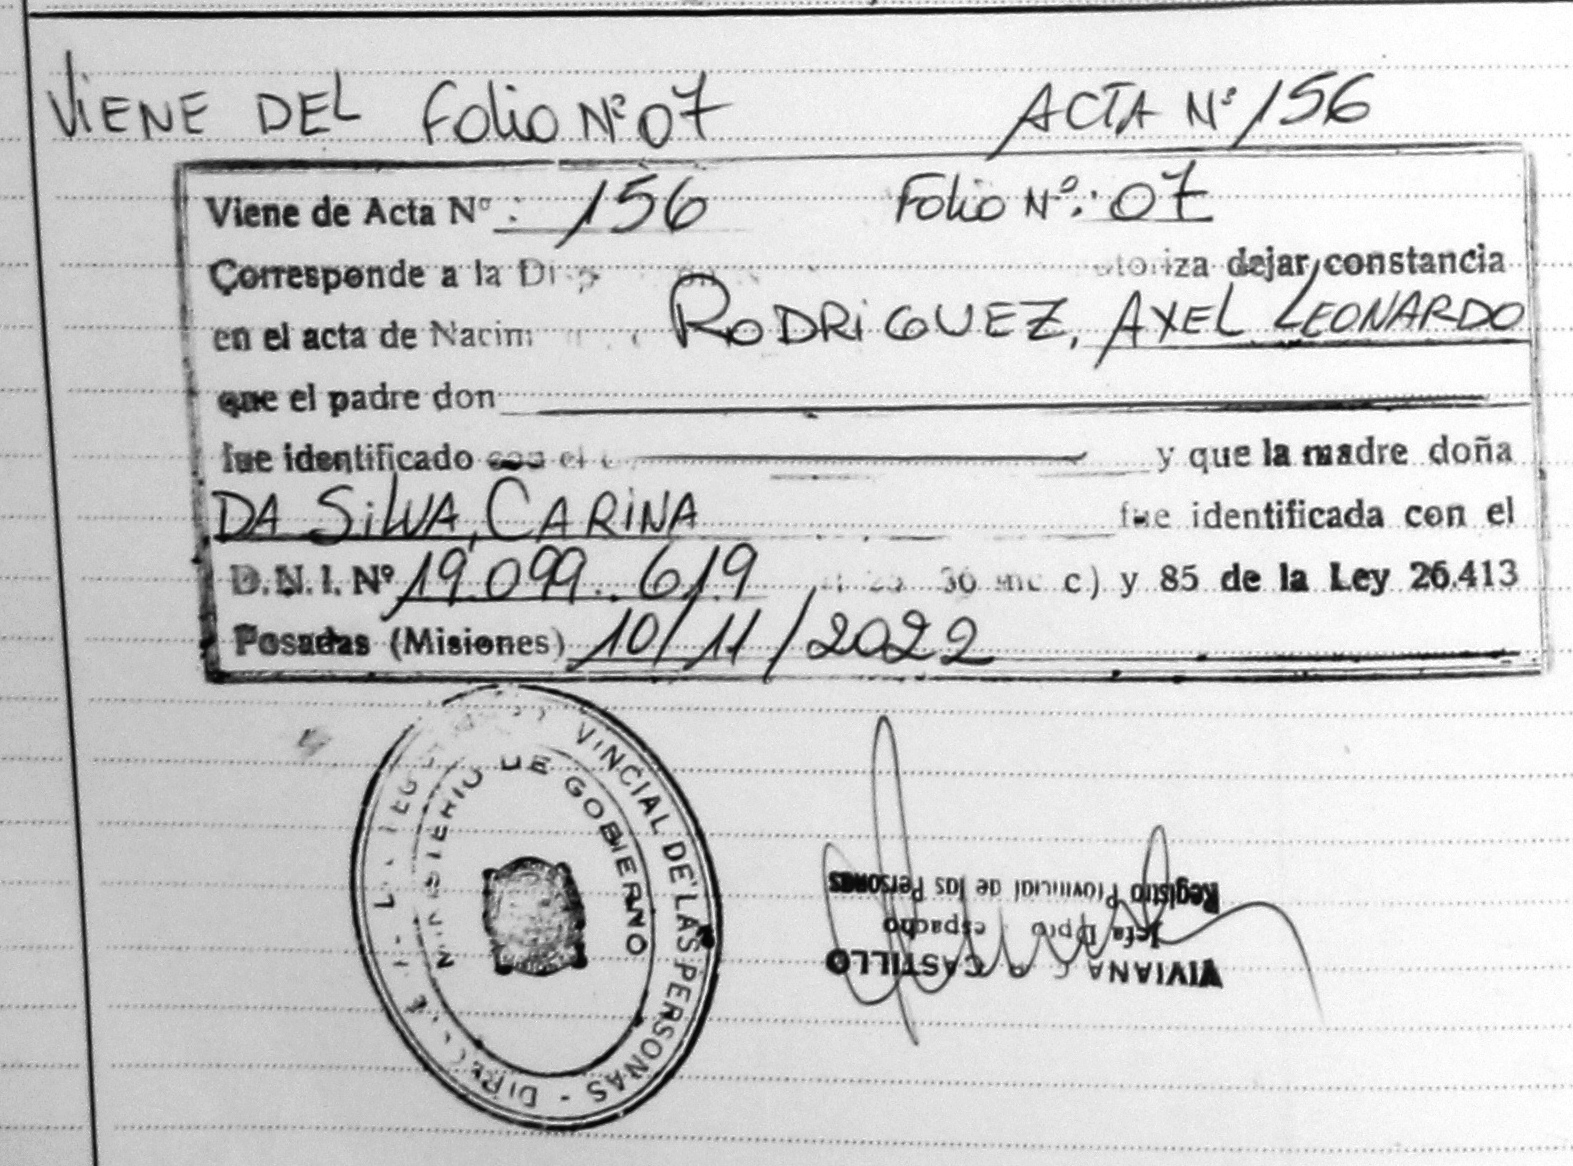 VIENE DEL Folio Nº 07 ACTA Nº 156
Viene de Acta Nº : 156 Folio Nº: 07
Corresponde a la dejar constancia
en el acta de RODRIGUEZ, AXEL LEONARDO
que el padre don
fue identificado y que la madre doña
DA SILVA, CARINA fue identificada con el
D.N.I. Nº 19.099.619 c) y 85 de la Ley 26.413
Posadas (Misiones) 10/11/2022
VINCIAL DE LAS PERSONAS -
DE GOBIERNO
VIVIANA CASTILLO
Jefa Dpto
Registro Provincial de las Personas